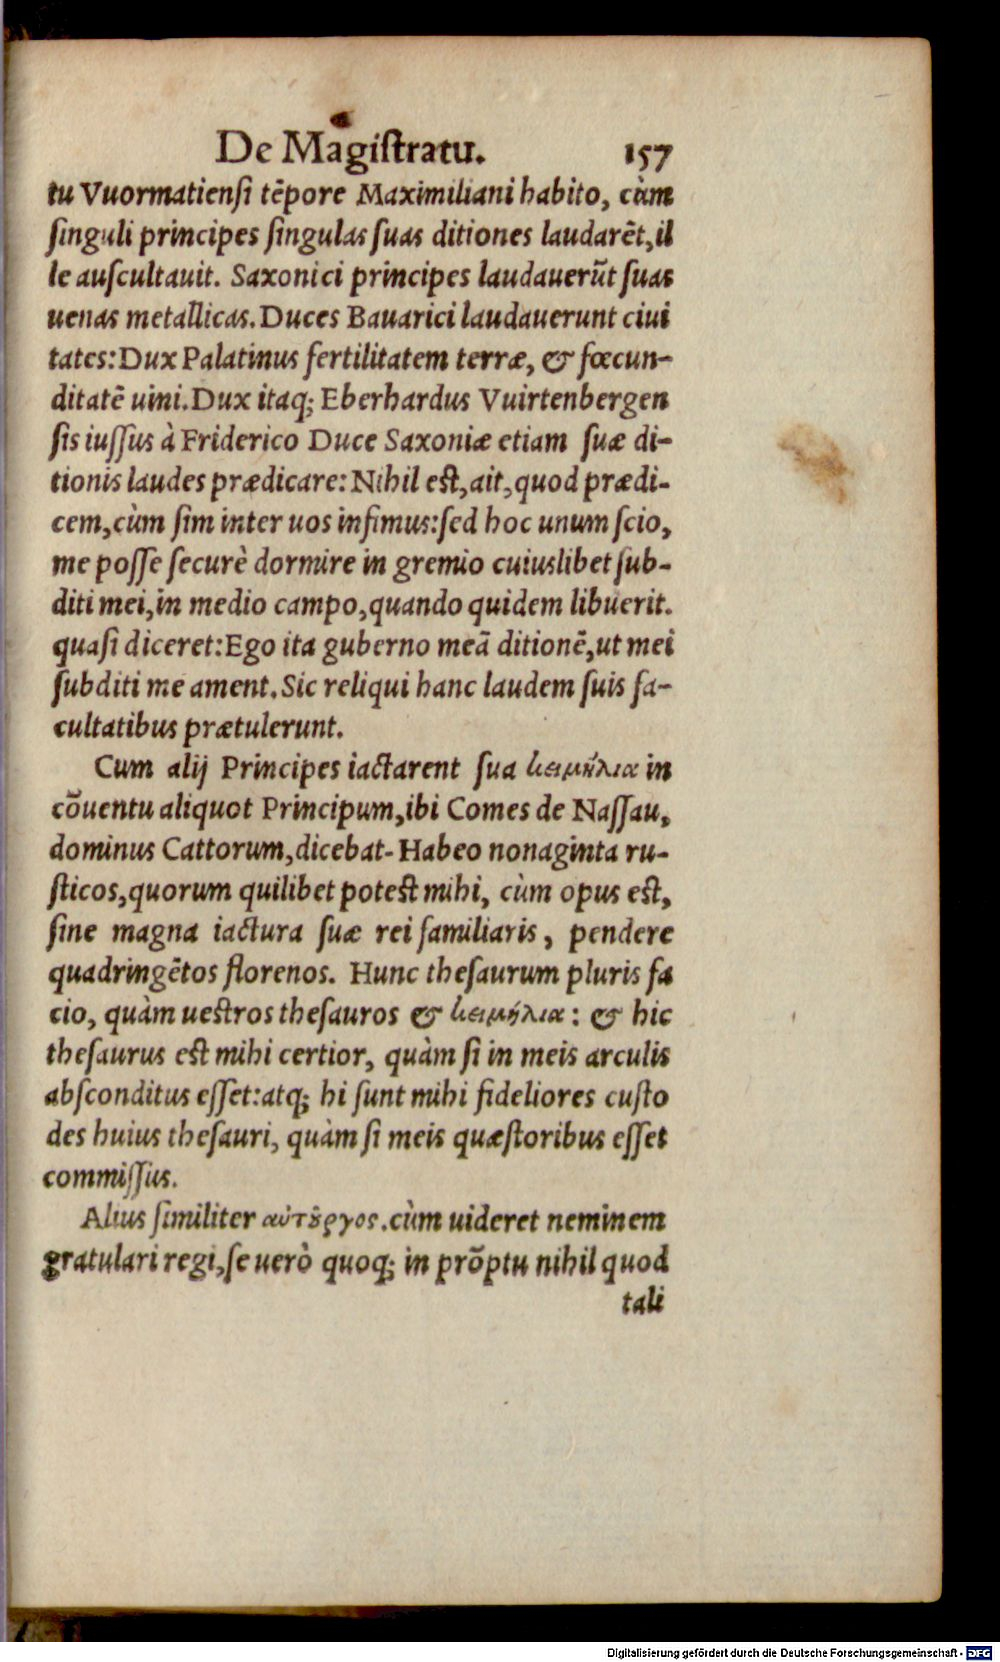 De Magiſtratu. 157
tu Vuormatienſi tẽpore Maximiliani habito, cùm
ſinguli principes ſingulas ſuas ditiones laudarẽt, il
le auſcultauit. Saxonici principes laudauerũt ſuas
uenas metallicas. Duces Bauarici laudauerunt ciui
tates: Dux Palatinus fertilitatem terræ, & fœcun-
ditatẽ uini. Dux itaq; Eberhardus Vuirtenbergen
ſis iuſſus à Friderico Duce Saxoniæ etiam ſuæ di-
tionis laudes prædicare: Nihil eſt, ait, quod prædi-
cem, cùm ſim inter uos infimus: ſed hoc unum ſcio,
me poſſe ſecurè dormire in gremio cuiuslibet ſub-
diti mei, in medio campo, quando quidem libuerit.
quaſi diceret: Ego ita guberno meã ditionẽ, ut mei
ſubditi me ament. Sic reliqui hanc laudem ſuis fa-
cultatibus prætulerunt.
Cum alij Principes iactarent ſua κειμήλια in
cõuentu aliquot Principum, ibi Comes de Naſſau,
dominus Cattorum, dicebat- Habeo nonaginta ru-
ſticos, quorum quilibet poteſt mihi, cùm opus eſt,
ſine magna iactura ſuæ rei familiaris, pendere
quadringẽtos florenos. Hunc theſaurum pluris fa
cio, quàm ueſtros theſauros & κειμήλια: & hic
theſaurus eſt mihi certior, quàm ſi in meis arculis
abſconditus eſſet: atq; hi ſunt mihi fideliores cuſto
des huius theſauri, quàm ſi meis quæſtoribus eſſet
commiſſus.
Alius ſimiliter αὐτȣργος. cùm uideret neminem
gratulari regi, ſe uerò quoq; in prõptu nihil quod
tali
Digitalisierung gefördert durch die Deutsche Forschungsgemeinschaft - DFG